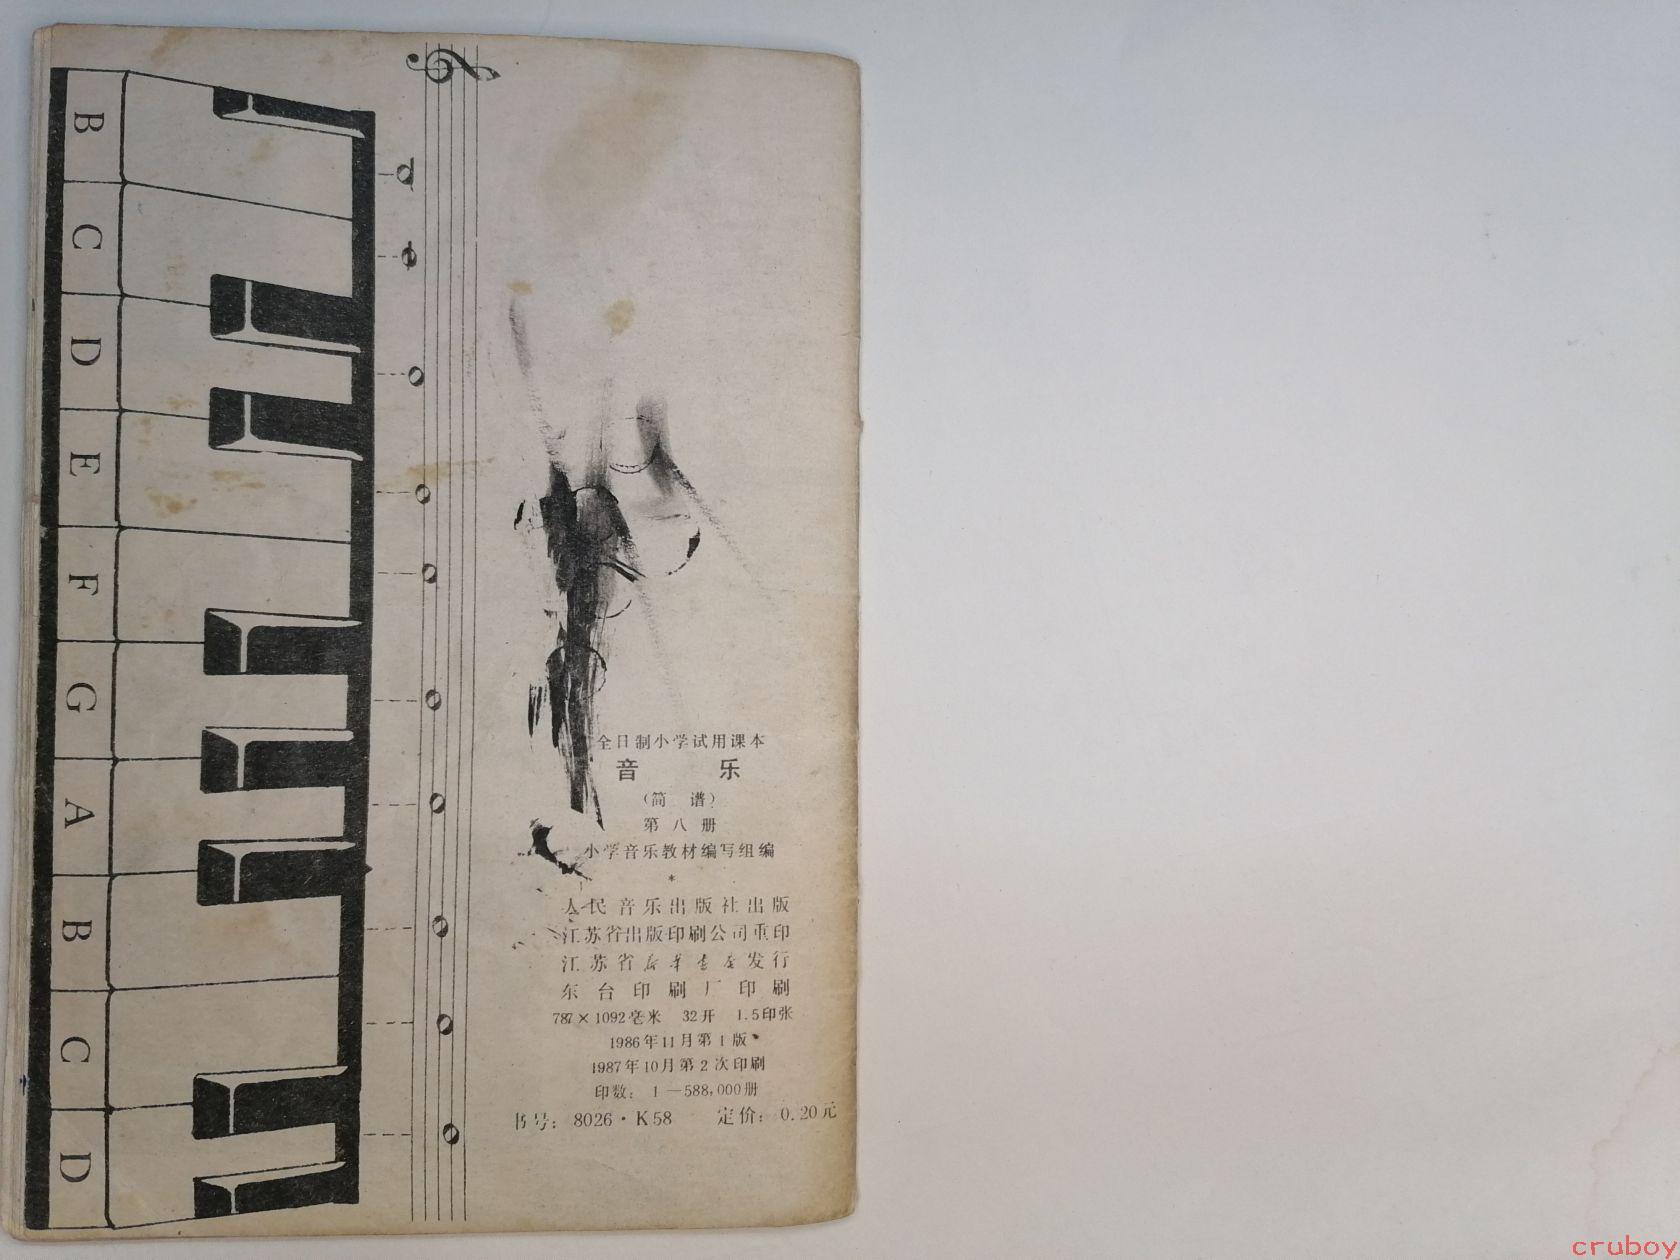 B
C
D
E
F
G
A
B
C
D
全日制小学试用课本
音 乐
（简 谱）
第八册
小学音乐教材编写组编
*
人民音乐出版社出版
江苏省出版印刷公司重印
江苏省新华书店发行
东台印刷厂印刷
787×1092毫米 32开 1.5印张
1986年11月第1版
1987年10月第2次印刷
印数：1—588,000册
书号：8026·K58 定价：0.20元
cruboy